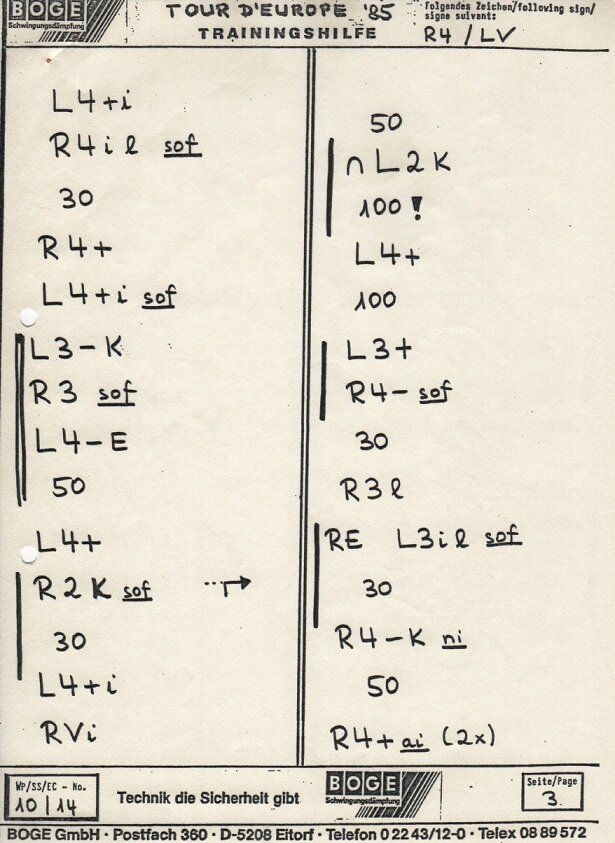 BOGE
Schwingungsdämpfung
TOUR D'EUROPE '85
TRAININGSHILFE
Folgendes Zeichen/following sign/
signe suivant:
R4 / LV
L4+i
R4il sof
30
R4+
L4+i sof
L3-K
R3 sof
L4-E
50
L4+
R2K sof
30
L4+i
RVi
50
∩L2K
100!
L4+
100
L3+
R4- sof
30
R3l
RE L3il sof
30
R4-K ni
50
R4+ai (2x)
WP/SS/EC - No.
10/14
Technik die Sicherheit gibt
BOGE
Schwingungsdämpfung
Seite/Page
3
BOGE GmbH · Postfach 360 · D-5208 Eitorf · Telefon 0 22 43/12-0 · Telex 08 89 572